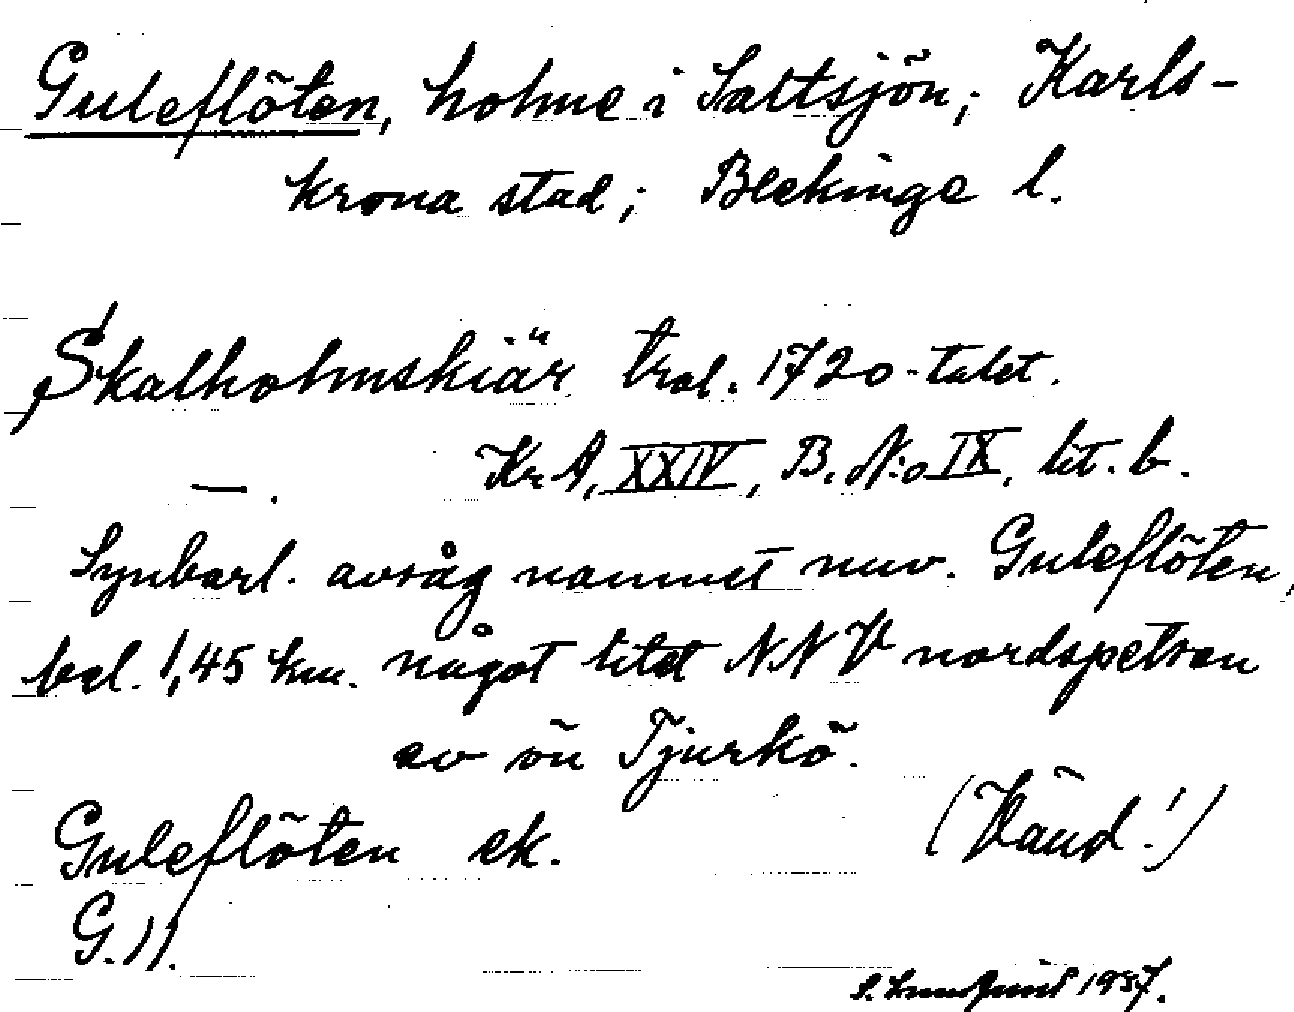 Guleflöten, holme i Saltsjön; Karls-
krona stad; Blekinge l.
Skalholmskiär trol. 1720-talet.
—. Kr. A, XXIV, B. N:o IX, lit. b.
Synbarl. avsåg namnet nuv. Guleflöten,
bel. 1,45 km. något litet NNV nordspetsen
av ön Tjurkö.
Guleflöten ek.
(Vänd!)
G. 11.
S. Lundquist 1937.